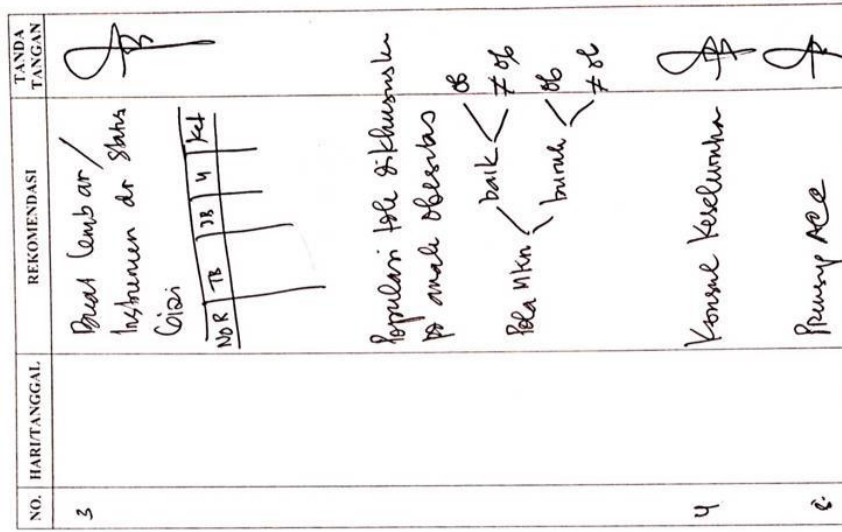 NO. HARI/TANGGAL REKOMENDASI TANDA TANGAN
3
Buat lembar/
Instrumen dr Status
Gizi
NOR TB BB U Ket
Populasi tdk dikhususkn
pd anak obesitas
Pola Mkn baik ob
≠ ob
buruk ob
≠ ob
4 Konsul Keseluruhan
ACC